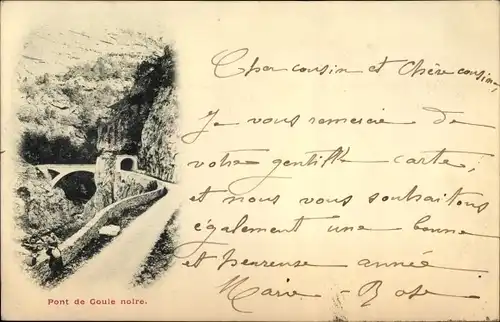 Cher cousin et Chère cousine,
Je vous remercie de
votre gentille carte,
et nous vous souhaitons
également une bonne
et heureuse année
Marie-Rose
Pont de Goule noire.